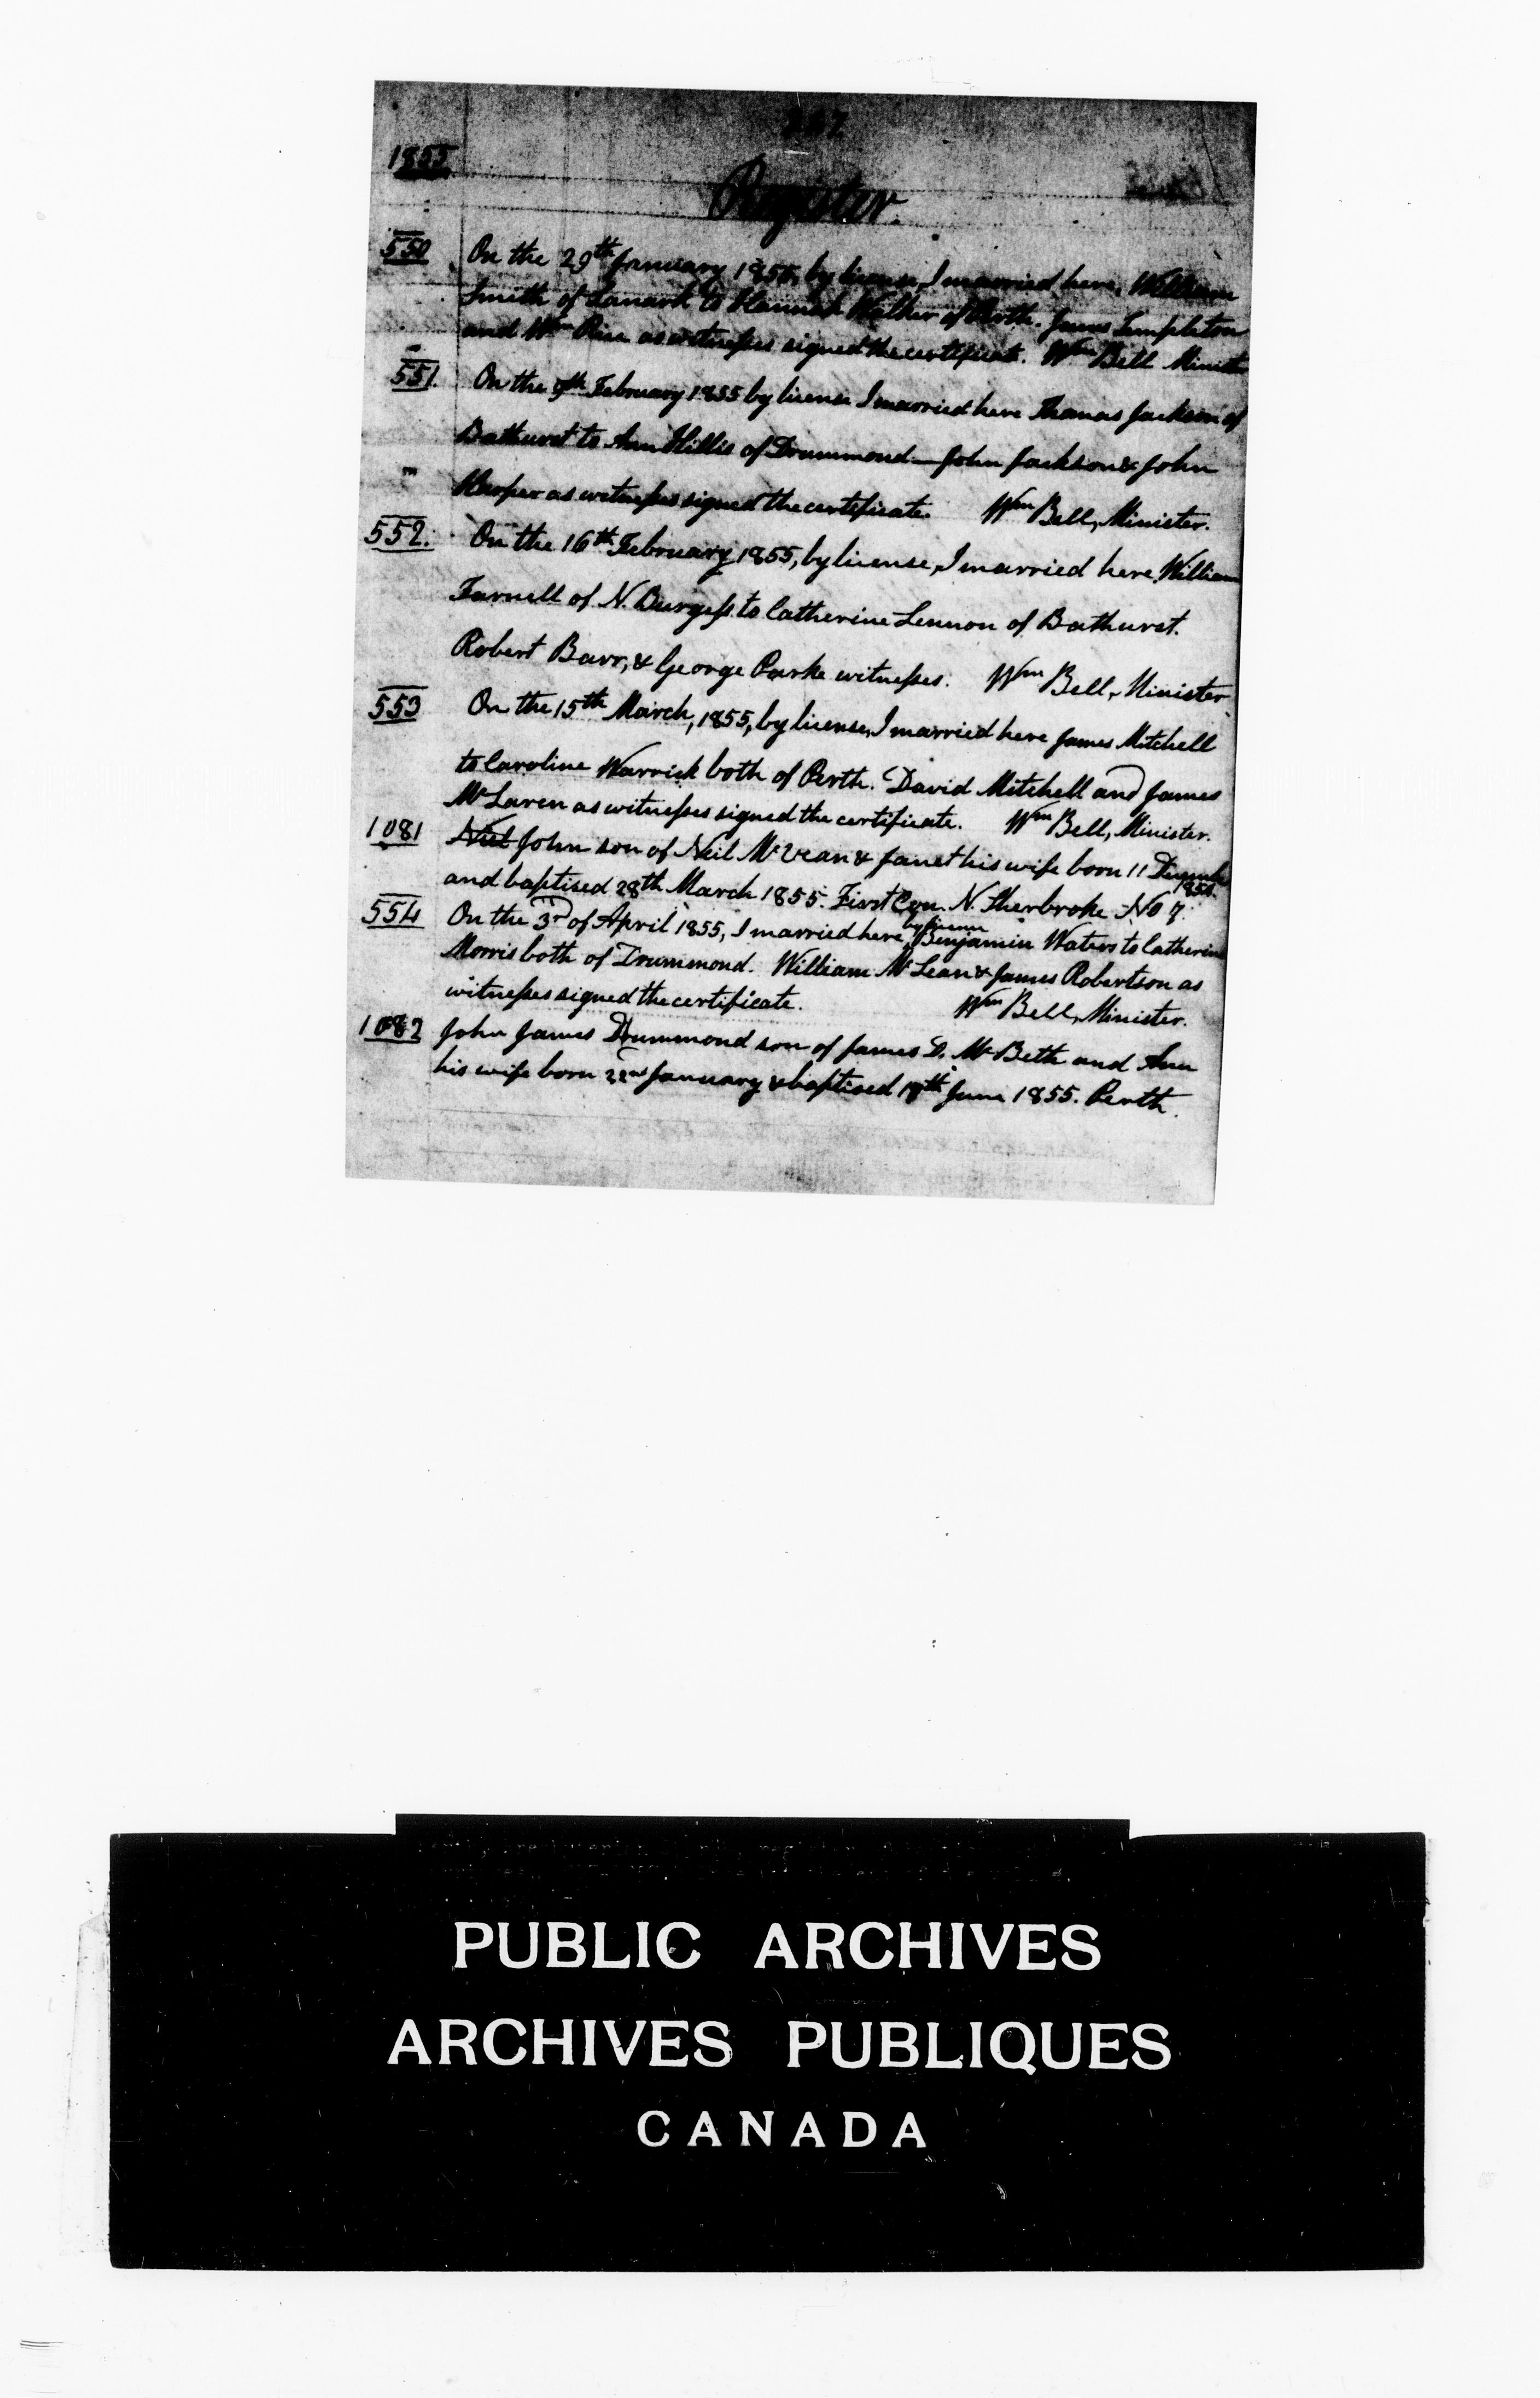 1855
Register.
550 On the 29th January 1855, by license, I married here, William
Smith of Lanark to Hannah Walker of Perth. James Templeton
and Wm as witnesses signed the certificate. Wm Bell Minister
551. On the 9th February 1855 by license I married here Thomas Jackson of
Bathurst to Ann Hillis of Drummond — John Jackson & John
Harper as witnesses signed the certificate. Wm Bell, Minister.
552. On the 16th February 1855, by license, I married here, William
Farnell of N. Burgess to Catherine Lennon of Bathurst.
Robert Barr, & George Parke witnesses. Wm Bell, Minister
553 On the 15th March, 1855, by license, I married here James Mitchell
to Caroline Warrick both of Perth. David Mitchell and James
McLaren as witnesses signed the certificate. Wm Bell, Minister.
1081 Neil John son of Neil McVean & Janet his wife born 11 December
1854.
and baptised 28th March 1855. First Con. N. Sherbroke No 7.
by license
554 On the 3rd of April 1855, I married here, Benjamin Waters to Catherine
Morris both of Drummond. William McLean & James Robertson as
witnesses signed the certificate. Wm Bell, Minister.
1082 John James Drummond son of James D. McBeth and Ann
his wife born 22nd January & baptised 18th June 1855. Perth.
PUBLIC ARCHIVES
ARCHIVES PUBLIQUES
CANADA